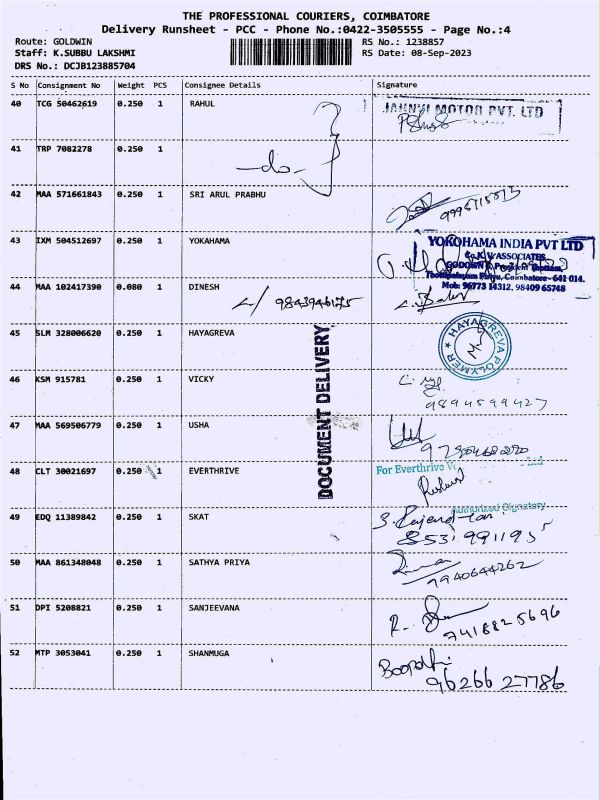 THE PROFESSIONAL COURIERS, COIMBATORE
Delivery Runsheet - PCC - Phone No.:0422-3505555 - Page No.:4
Route: GOLDWIN
RS No.: 1238857
Staff: K.SUBBU LAKSHMI
RS Date: 08-Sep-2023
DRS No.: DCJB123885704
S No Consignment No Weight PCS Consignee Details Signature
40 TCG 50462619 0.250 1 RAHUL
JAHNVI MOTOR PVT. LTD
41 TRP 7082278 0.250 1
-do-
42 MAA 571661843 0.250 1 SRI ARUL PRABHU
43 IXM 504512697 0.250 1 YOKAHAMA
YOKOHAMA INDIA PVT LTD
ASSOCIATES,
Coimbatore- 641 014.
Mob: 96773 14312, 98409 65748
44 MAA 102417390 0.080 1 DINESH
9843946175
45 SLM 328006620 0.250 1 HAYAGREVA
HAYAGREVA POLYMER
46 KSM 915781 0.250 1 VICKY
9894599427
47 MAA 569506779 0.250 1 USHA
DOCUMENT DELIVERY
48 CLT 30021697 0.250 1 EVERTHRIVE
For Everthrive
Ltd
Authorized Signatory
49 EDQ 11389842 0.250 1 SKAT
50 MAA 861348048 0.250 1 SATHYA PRIYA
7940644262
51 DPI 5208821 0.250 1 SANJEEVANA
7418825696
52 MTP 3053041 0.250 1 SHANMUGA
Boopathi
9626627786